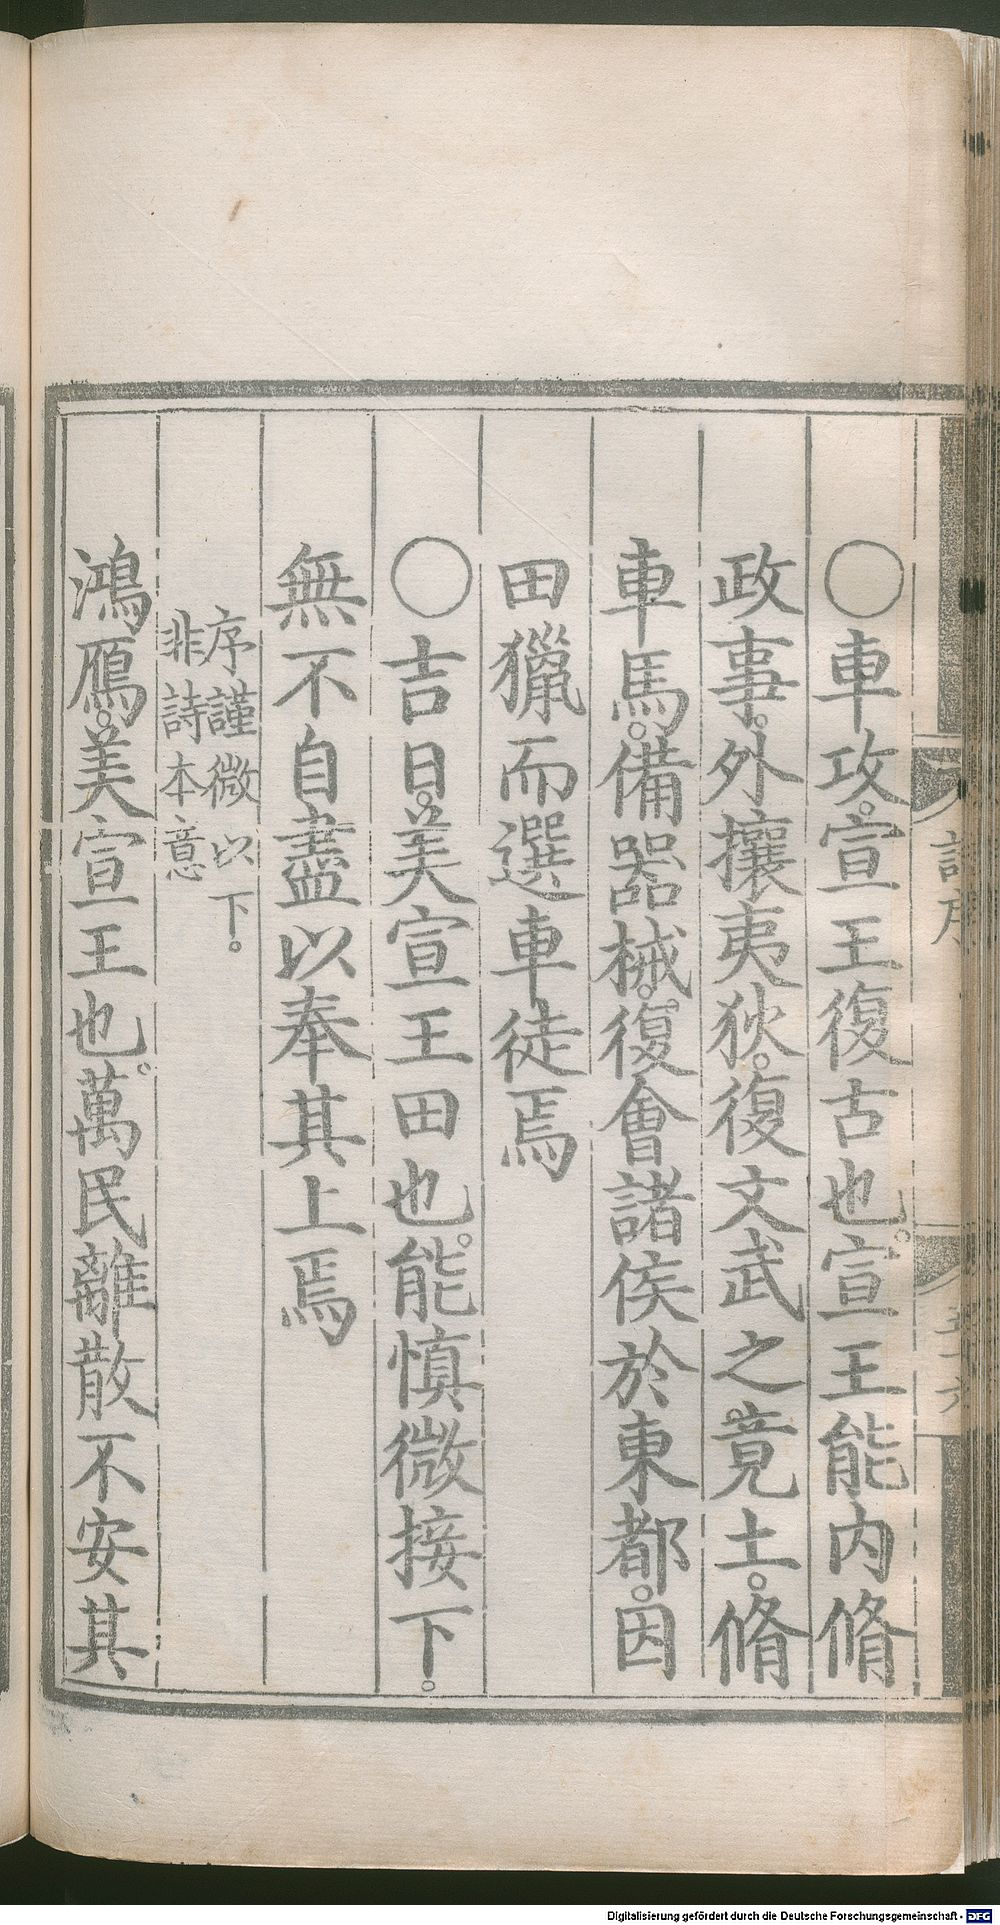 〇車攻。宣王復古也。宣王能内脩
政事。外攘夷狄。復文武之竟土。脩
車馬。備器械。復會諸侯於東都。因
田獵而選車徒焉
〇吉日。美宣王田也。能慎微接下。
無不自盡以奉其上焉
序謹微以下。
非詩本意
鴻鴈。美宣王也。萬民離散不安其
Digitalisierung gefördert durch die Deutsche Forschungsgemeinschaft - DFG